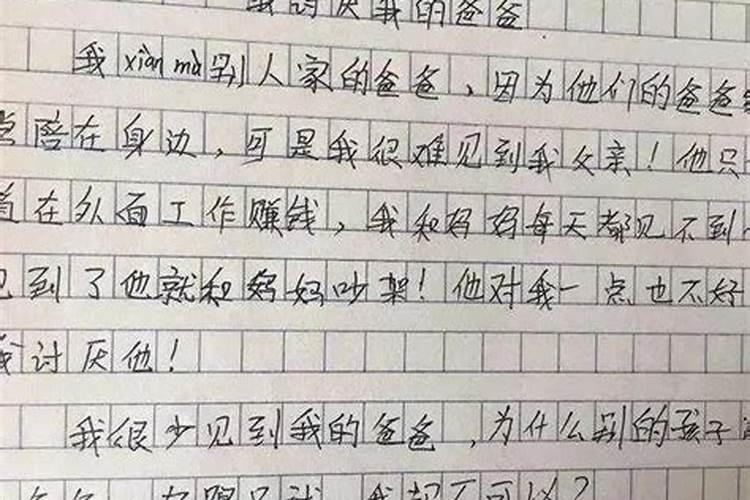 我讨厌我的爸爸
我xiàn mù别人家的爸爸，因为他们的爸爸
陪在身边，可是我很难见到我父亲！他只
在外面工作赚钱，我和妈妈每天都见不到
到了他就和妈妈吵架！他对我一点也不好
我讨厌他！
我很少见到我的爸爸，为什么别的孩子
我却不可以？